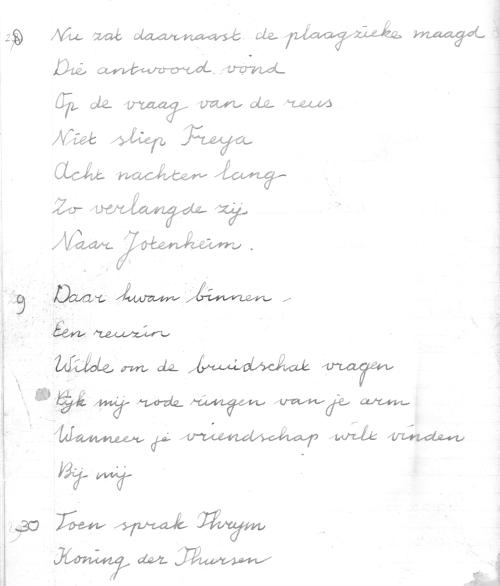 28 Nu zat daarnaast de plaagzieke maagd
Die antwoord vond
Op de vraag van de reus
Niet sliep Freya
Acht nachten lang
Zo verlangde zij
Naar Jotenheim.
9 Daar kwam binnen
Een reuzin
Wilde om de bruidschat vragen
mij rode ringen van je arm
Wanneer je vriendschap wilt vinden
Bij mij
30 Toen sprak Thrym
Koning der Thursen